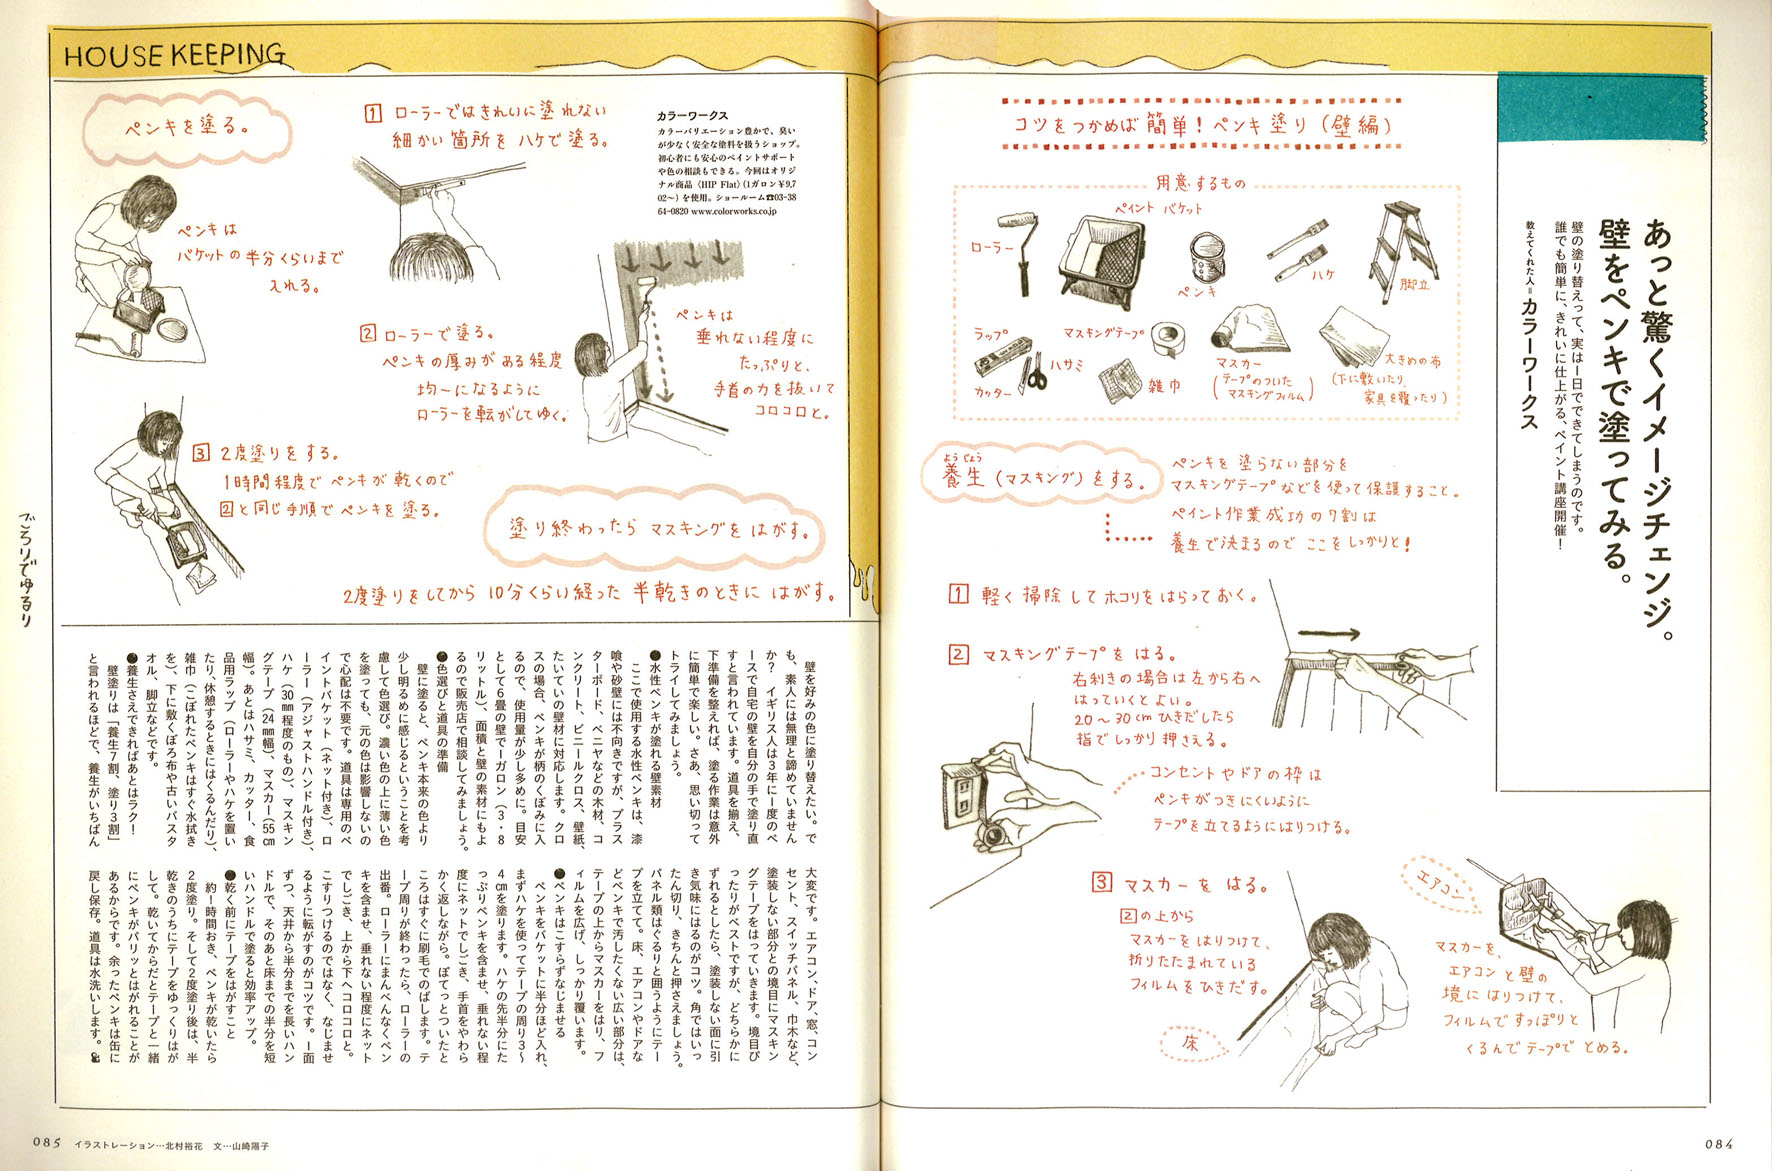 HOUSE KEEPING
あっと驚くイメージチェンジ。
壁をペンキで塗ってみる。
壁の塗り替えって、実は一日でできてしまうのです。
誰でも簡単に、きれいに仕上がる、ペイント講座開催！
教えてくれた人＝カラーワークス
コツをつかめば簡単！ペンキ塗り（壁編）
用意するもの
ローラー
ペイント バケット
ペンキ
ハケ
脚立
ラップ
カッター
ハサミ
マスキングテープ
雑巾
マスカー
（テープのついた
マスキングフィルム）
大きめの布
（下に敷いたり
家具を覆ったり）
ようじょう
養生（マスキング）をする。
ペンキを塗らない部分を
マスキングテープなどを使って保護すること。
ペイント作業成功の7割は
養生で決まるので ここをしっかりと！
1 軽く掃除してホコリをはらっておく。
2 マスキングテープをはる。
右利きの場合は左から右へ
はっていくとよい。
20〜30cmひきだしたら
指でしっかり押さえる。
コンセントやドアの枠は
ペンキがつきにくいように
テープを立てるようにはりつける。
3 マスカーをはる。
2の上から
マスカーをはりつけて、
折りたたまれている
フィルムをひきだす。
床
エアコン
マスカーを、
エアコンと壁の
境にはりつけて、
フィルムですっぽりと
くるんでテープでとめる。
084
ペンキを塗る。
ペンキは
バケットの半分くらいまで
入れる。
1 ローラーではきれいに塗れない
細かい箇所をハケで塗る。
カラーワークス
カラーバリエーション豊かで、臭い
が少なく安全な塗料を扱うショップ。
初心者にも安心のペイントサポート
や色の相談もできる。今回はオリジ
ナル商品〈HIP Flat〉（1ガロン¥9,7
02〜）を使用。ショールーム☎03-38
64-0820 www.colorworks.co.jp
2 ローラーで塗る。
ペンキの厚みがある程度
均一になるように
ローラーを転がしてゆく。
ペンキは
垂れない程度に
たっぷりと、
手首の力を抜いて
コロコロと。
3 2度塗りをする。
1時間程度でペンキが乾くので
2と同じ手順でペンキを塗る。
塗り終わったら マスキングをはがす。
2度塗りをしてから 10分くらい経った 半乾きのときに はがす。
ごろりでゆるり
壁を好みの色に塗り替えたい。で
も、素人には無理と諦めていません
か？ イギリス人は3年に一度のペ
ースで自宅の壁を自分の手で塗り直
すと言われています。道具を揃え、
下準備を整えれば、塗る作業は意外
に簡単で楽しい。さあ、思い切って
トライしてみましょう。
●水性ペンキが塗れる壁素材
ここで使用する水性ペンキは、漆
喰や砂壁には不向きですが、プラス
ターボード、ベニヤなどの木材、コ
ンクリート、ビニールクロス、壁紙、
たいていの壁材に対応します。クロ
スの場合、ペンキが柄のくぼみに入
るので、使用量が少し多めに。目安
として6畳の壁で一ガロン（3・8
リットル）、面積と壁の素材にもよ
るので販売店で相談してみましょう。
●色選びと道具の準備
壁に塗ると、ペンキ本来の色より
少し明るめに感じるということを考
慮して色選び。濃い色の上に薄い色
を塗っても、元の色は影響しないの
で心配は不要です。道具は専用のペ
イントバケット（ネット付き）、ロ
ーラー（アジャストハンドル付き）、
ハケ（30㎜程度のもの）、マスキン
グテープ（24㎜幅）、マスカー（55㎝
幅）。あとはハサミ、カッター、食
品用ラップ（ローラーやハケを置い
たり、休憩するときにはくるんだり）、
雑巾（こぼれたペンキはすぐ水拭き
を）、下に敷くぼろ布や古いバスタ
オル、脚立などです。
●養生さえできればあとはラク！
壁塗りは「養生7割、塗り3割」
と言われるほどで、養生がいちばん
大変です。エアコン、ドア、窓、コン
セント、スイッチパネル、巾木など、
塗装しない部分との境目にマスキン
グテープをはっていきます。境目ぴ
ったりがベストですが、どちらかに
ずれるとしたら、塗装しない面に引
き気味にはるのがコツ。角ではいっ
たん切り、きちんと押さえましょう。
パネル類はぐるりと囲うようにテー
プを立てて。床、エアコンやドアな
どペンキで汚したくない広い部分は、
テープの上からマスカーをはり、フ
ィルムを広げ、しっかり覆います。
●ペンキはこすらずなじませる
ペンキをバケットに半分ほど入れ、
まずハケを使ってテープの周り3〜
4㎝を塗ります。ハケの先半分にた
っぷりペンキを含ませ、垂れない程
度にネットでしごき、手首をやわら
かく返しながら。ぽてっとついたと
ころはすぐに刷毛でのばします。テ
ープ周りが終わったら、ローラーの
出番。ローラーにまんべんなくペン
キを含ませ、垂れない程度にネット
でしごき、上から下へコロコロと。
こすりつけるのではなく、なじませ
るように転がすのがコツです。一面
ずつ、天井から半分までを長いハン
ドルで、そのあと床までの半分を短
いハンドルで塗ると効率アップ。
●乾く前にテープをはがすこと
約一時間おき、ペンキが乾いたら
2度塗り。そして2度塗り後は、半
乾きのうちにテープをゆっくりはが
して。乾いてからだとテープと一緒
にペンキがパリッとはがれることが
あるからです。余ったペンキは缶に
戻し保存。道具は水洗いします。
085 イラストレーション…北村裕花 文…山崎陽子